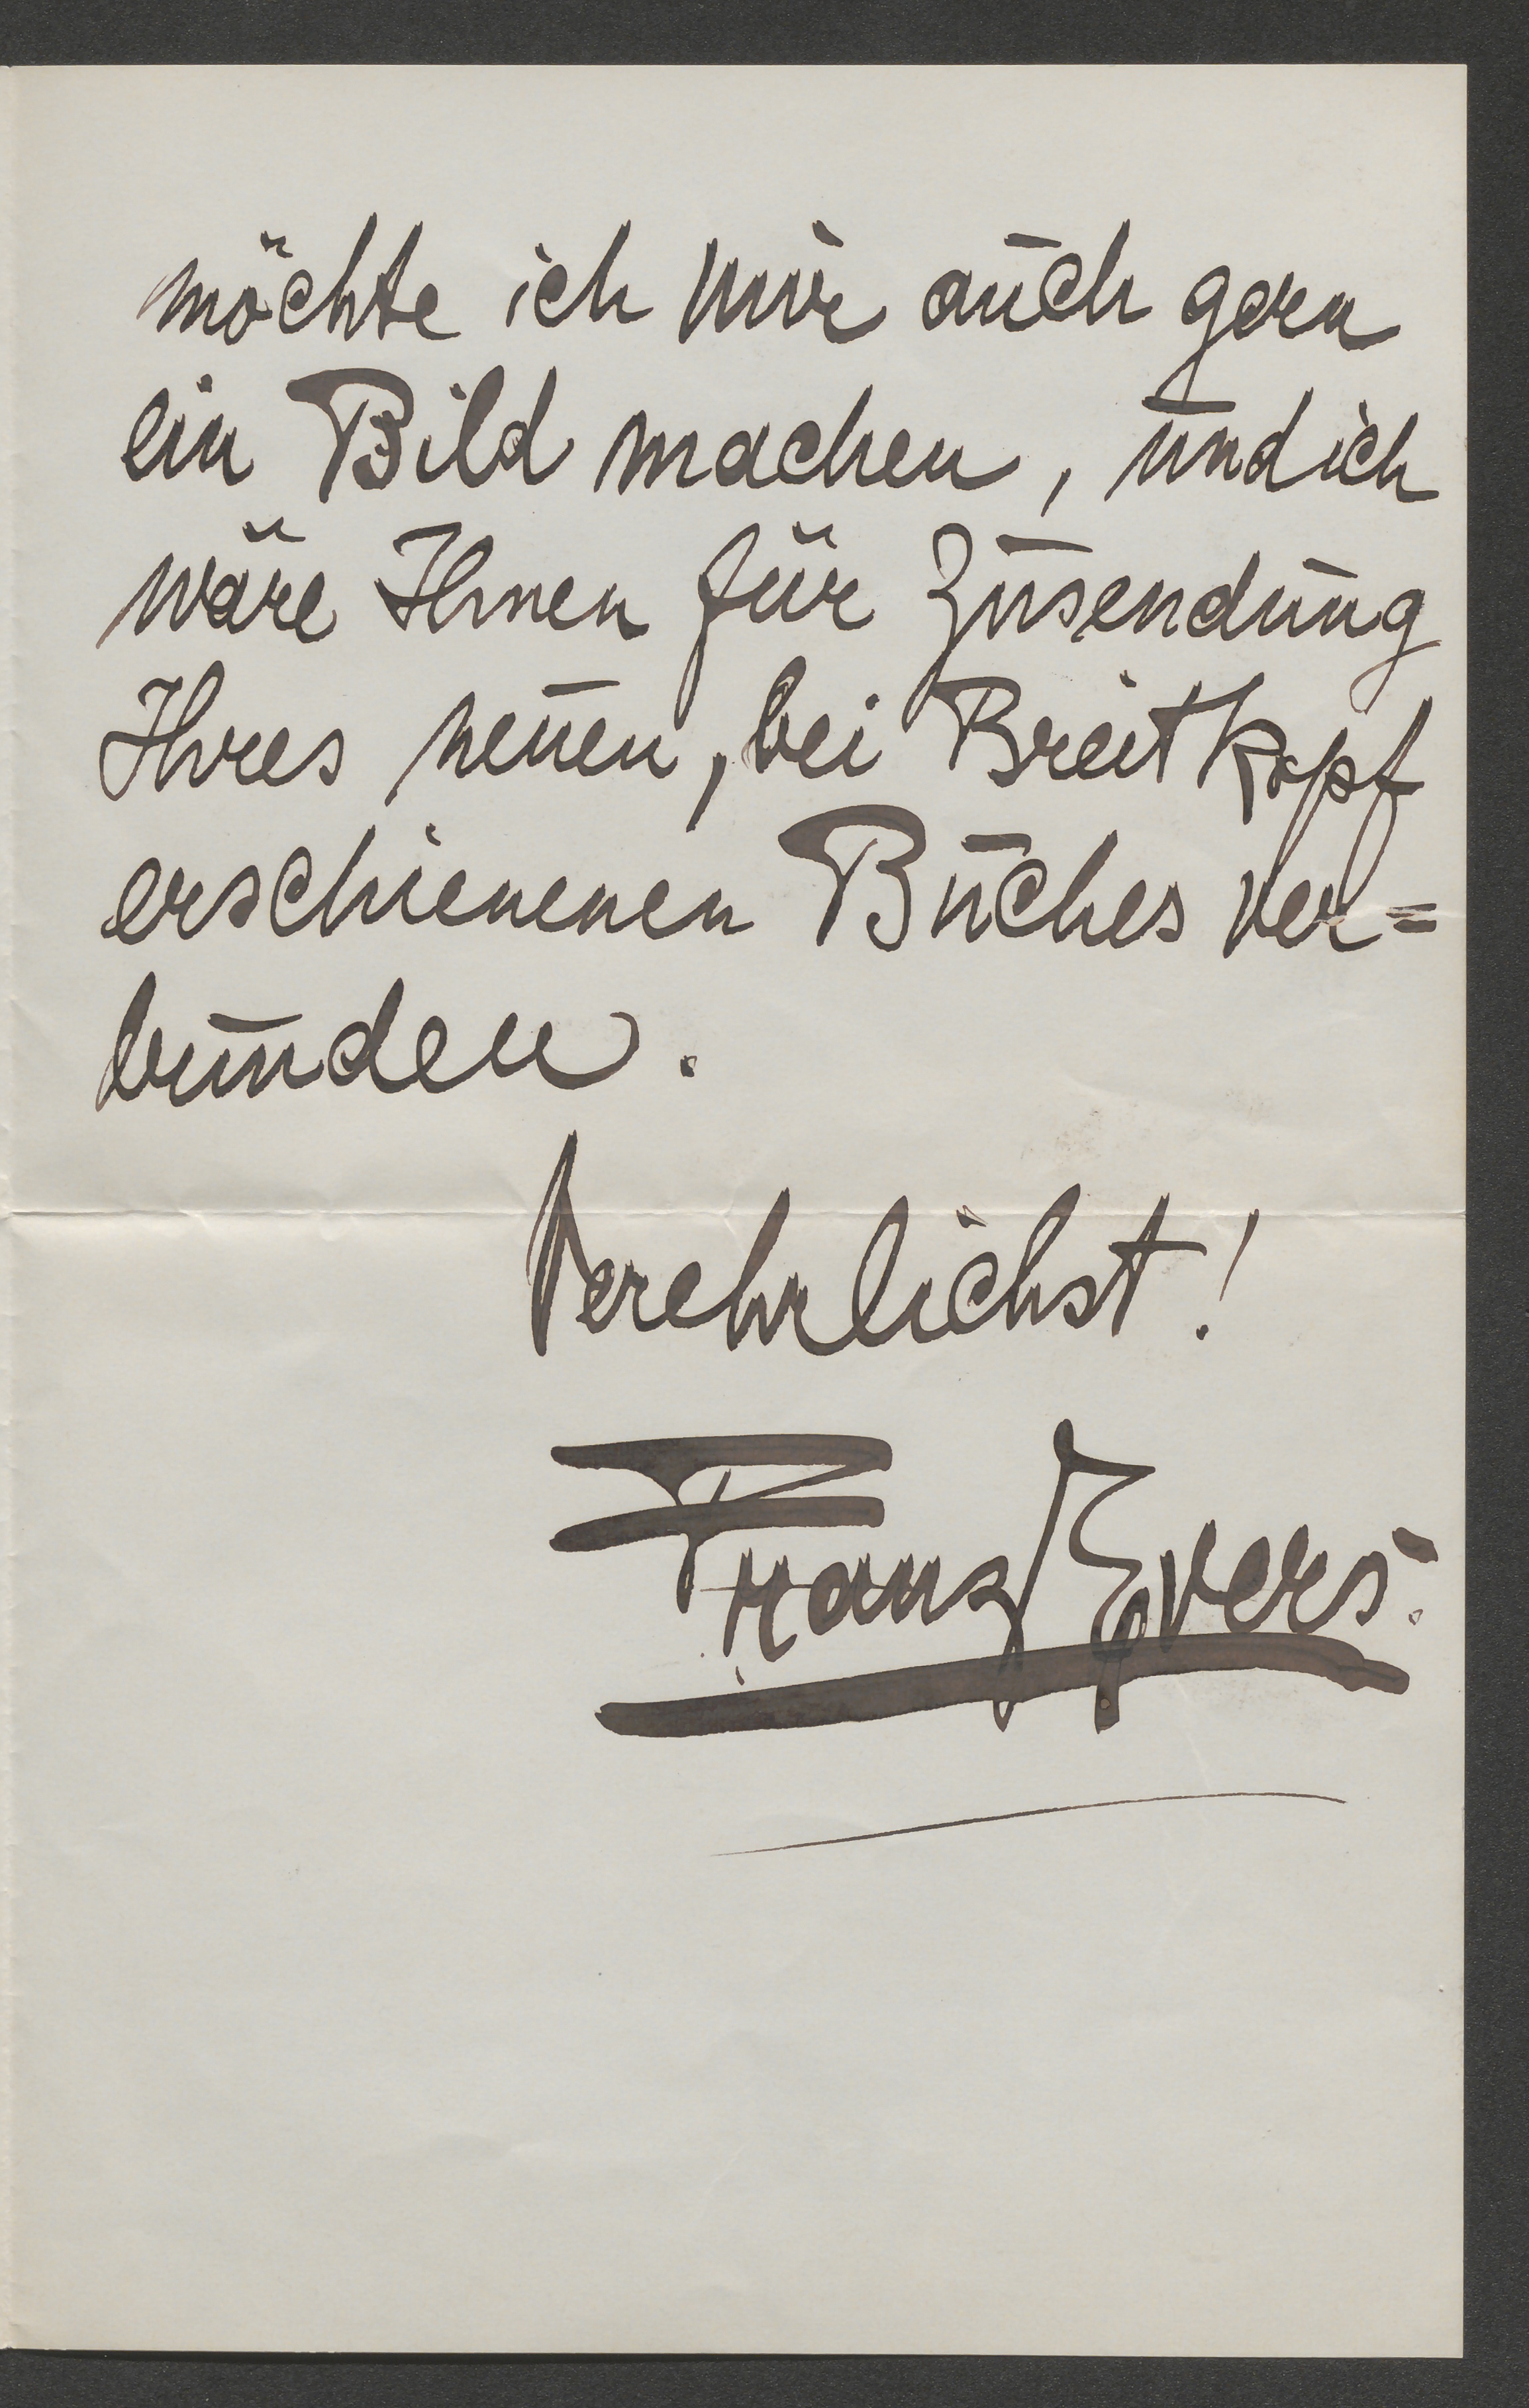 möchte ich mir auch gern
ein Bild machen, und ich
wäre Ihnen für Zusendung
Ihres neuen, bei Breitkopf
erschienenen Buches ver=
bunden.
Verehrlichst!
Franz Evers.